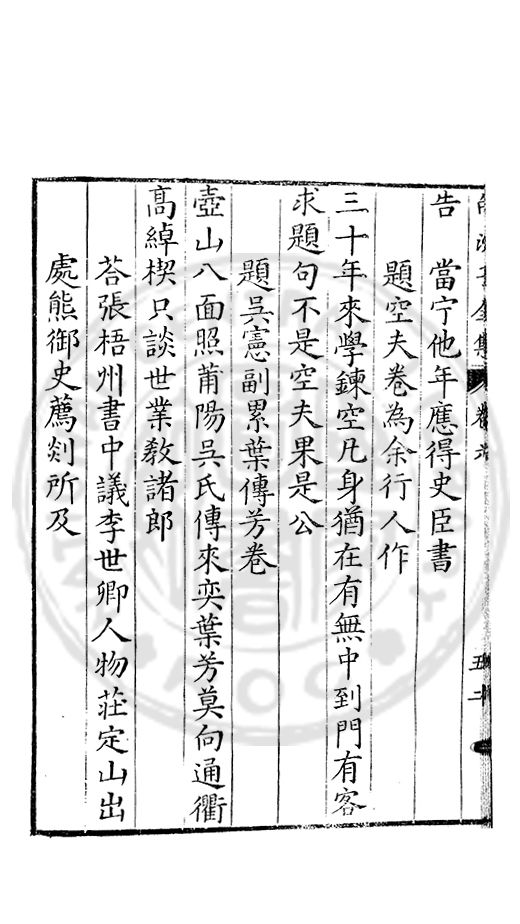 白沙子全集 卷六 五二
告　當宁他年應得史臣書
題空夫卷為余行人作
三十年來學鍊空凡身猶在有無中到門有客
求題句不是空夫果是公
題吳憲副累葉傳芳卷
壺山八面照莆陽吳氏傳來奕葉芳莫向通衢
高綽楔只談世業教諸郎
荅張梧州書中議李世卿人物莊定山出
處熊御史薦剡所及